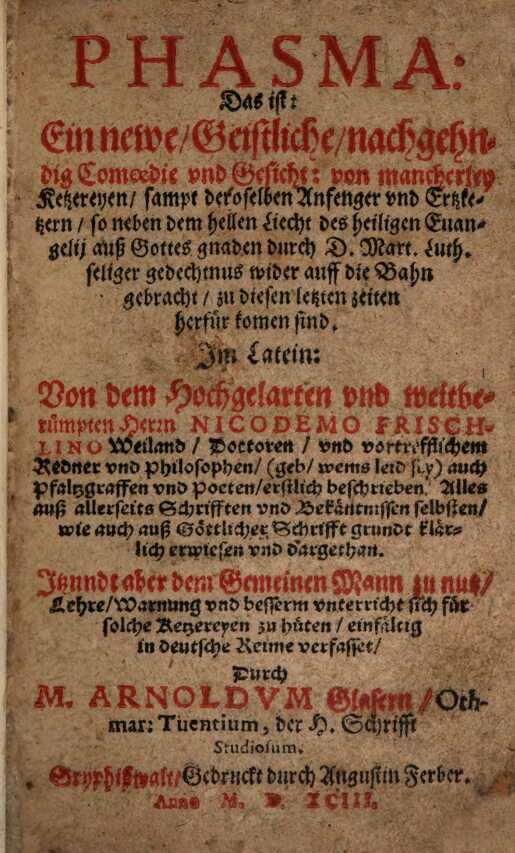 PHASMA:
Das ist:
Ein newe/Geistliche/nachgehn-
dig Comœdie vnd Gesicht: von mancherley
Ketzereyen/ sampt deroselben Anfenger vnd Ertzke-
tzern/ so neben dem hellen Liecht des heiligen Euan-
gelij auß Gottes gnaden durch D. Mart. Luth.
seliger gedechtnus wider auff die Bahn
gebracht/ zu diesen letzten zeiten
herfür komen sind.
Im Latein:
Von dem Hochgelarten vnd weitbe-
rümpten Herrn NICODEMO FRISCH-
LINO Weiland/ Doctoren/ vnd vortrefflichem
Redner vnd Philosophen/ (geb/ wems leid sey) auch
Pfaltzgraffen vnd Poeten/erstlich beschrieben. Alles
auß allerseits Schrifften vnd Bekäntnissen selbsten/
wie auch auß Göttlicher Schrifft grundt klär-
lich erwiesen vnd dargethan.
Itzundt aber dem Gemeinen Mann zu nutz/
Lehre/Warnung vnd besserm vnterricht sich für
solche Ketzereyen zu hüten/ einfältig
in deutsche Reime verfasset/
Durch
M. ARNOLDVM Glasern/Oth-
mar: Tuentium, der H. Schrifft
Studiosum.
Gryphißwalt/Gedruckt durch Augustin Ferber.
Anno M. D. XCIII.